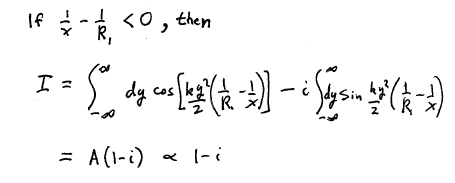 If 1/x - 1/R₁ < 0, then
I = ∫_{-∞}^{∞} dy cos[ky²/2 (1/R₁ - 1/x)] - i ∫_{-∞}^{∞} dy sin ky²/2 (1/R₁ - 1/x)
= A(1-i) ∝ 1-i